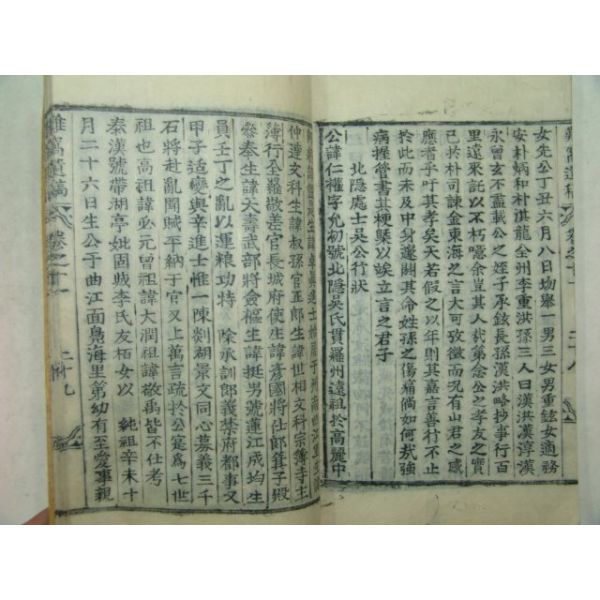 女先公丁丑六月八日均擧一男三女男重鉉女適務
安朴炳和朴淇龍全州李重洪孫三人曰漢洪漢淳漢
永曾玄不盡載公之姪子承鉉長孫漢洪略抄事行百
里遠來託以不朽噫余豈其人哉第念公之孝友之實
已於朴司諫金東海之言大可攷徵而況有山君之感
應者乎吁其孝矣天若假之以年則其嘉言善行不止
於此而未及中身遽閼其命姓孫之傷痛倘如何哉强
病捉管書其梗槩以竢立言之君子
北隱處士吳公行狀
公諱仁權字允初號北隱吳氏貫羅州遠祖於高麗中
仲達文科生諱叔孫官正郎生諱世相文科宗簿寺主
簿行全羅敬差官長城府使生諱彦國將仕郎箕子殿
參奉生諱天壽武部將僉樞生諱挺男號蓮江成均生
員壬丁之亂以運粮功特除承訓郎義禁府都事又
甲子适變與辛進士惟一陳劇胡景文同心募義三千
石將赴亂聞賊平納于官又上萬言疏於公寔爲七世
祖也高祖諱必元曾祖諱大潤祖諱敬禹皆不仕考
泰漢號帶湖亭妣固城李氏友栢女以純祖辛未十
月二十六日生公于曲江面鳧海里第幼有至愛事親
卷之十一
二十九